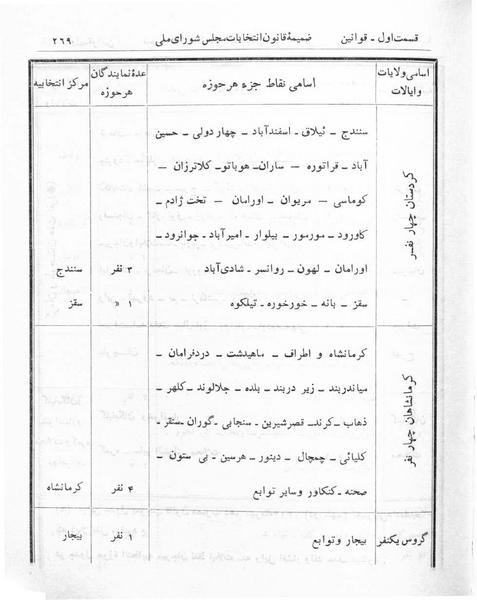 قسمت اول - قوانین ضمیمهٔ قانون انتخابات مجلس شورای ملی ۲۶۹
اسامی ولایات وایالات
اسامی نقاط جزء هر حوزه
عدهٔ نمایندگان هر حوزه
مرکز انتخابیه
کردستان چهار نفر
سنندج – ئیلاق – اسفندآباد – چهاردولی – حسین
آباد – قراتوره – ساران – هوباتو – کلاترزان –
کوماسی – مریوان – اورامان – تخت ژادم –
کاورود – مورمور – بیلوار – امیرآباد – جوانرود –
اورامان – لهون – روانسر – شادی‌آباد ۳ نفر سنندج
سقز – بانه – خورخوره – تیلکوه ۱ « سقز
کرمانشاهان چهار نفر
کرمانشاه و اطراف – ماهیدشت – دردفرامان –
میاندربند – زیر دربند – بلده – جلالوند – کلهر –
ذهاب – کرند – قصرشیرین – سنجابی – گوران – سنقر –
کلیائی – چمچال – دینور – هرسین – بی ستون –
صحنه – کنکاور وسایر توابع ۴ نفر کرمانشاه
گروس یکنفر بیجار وتوابع ۱ نفر بیجار